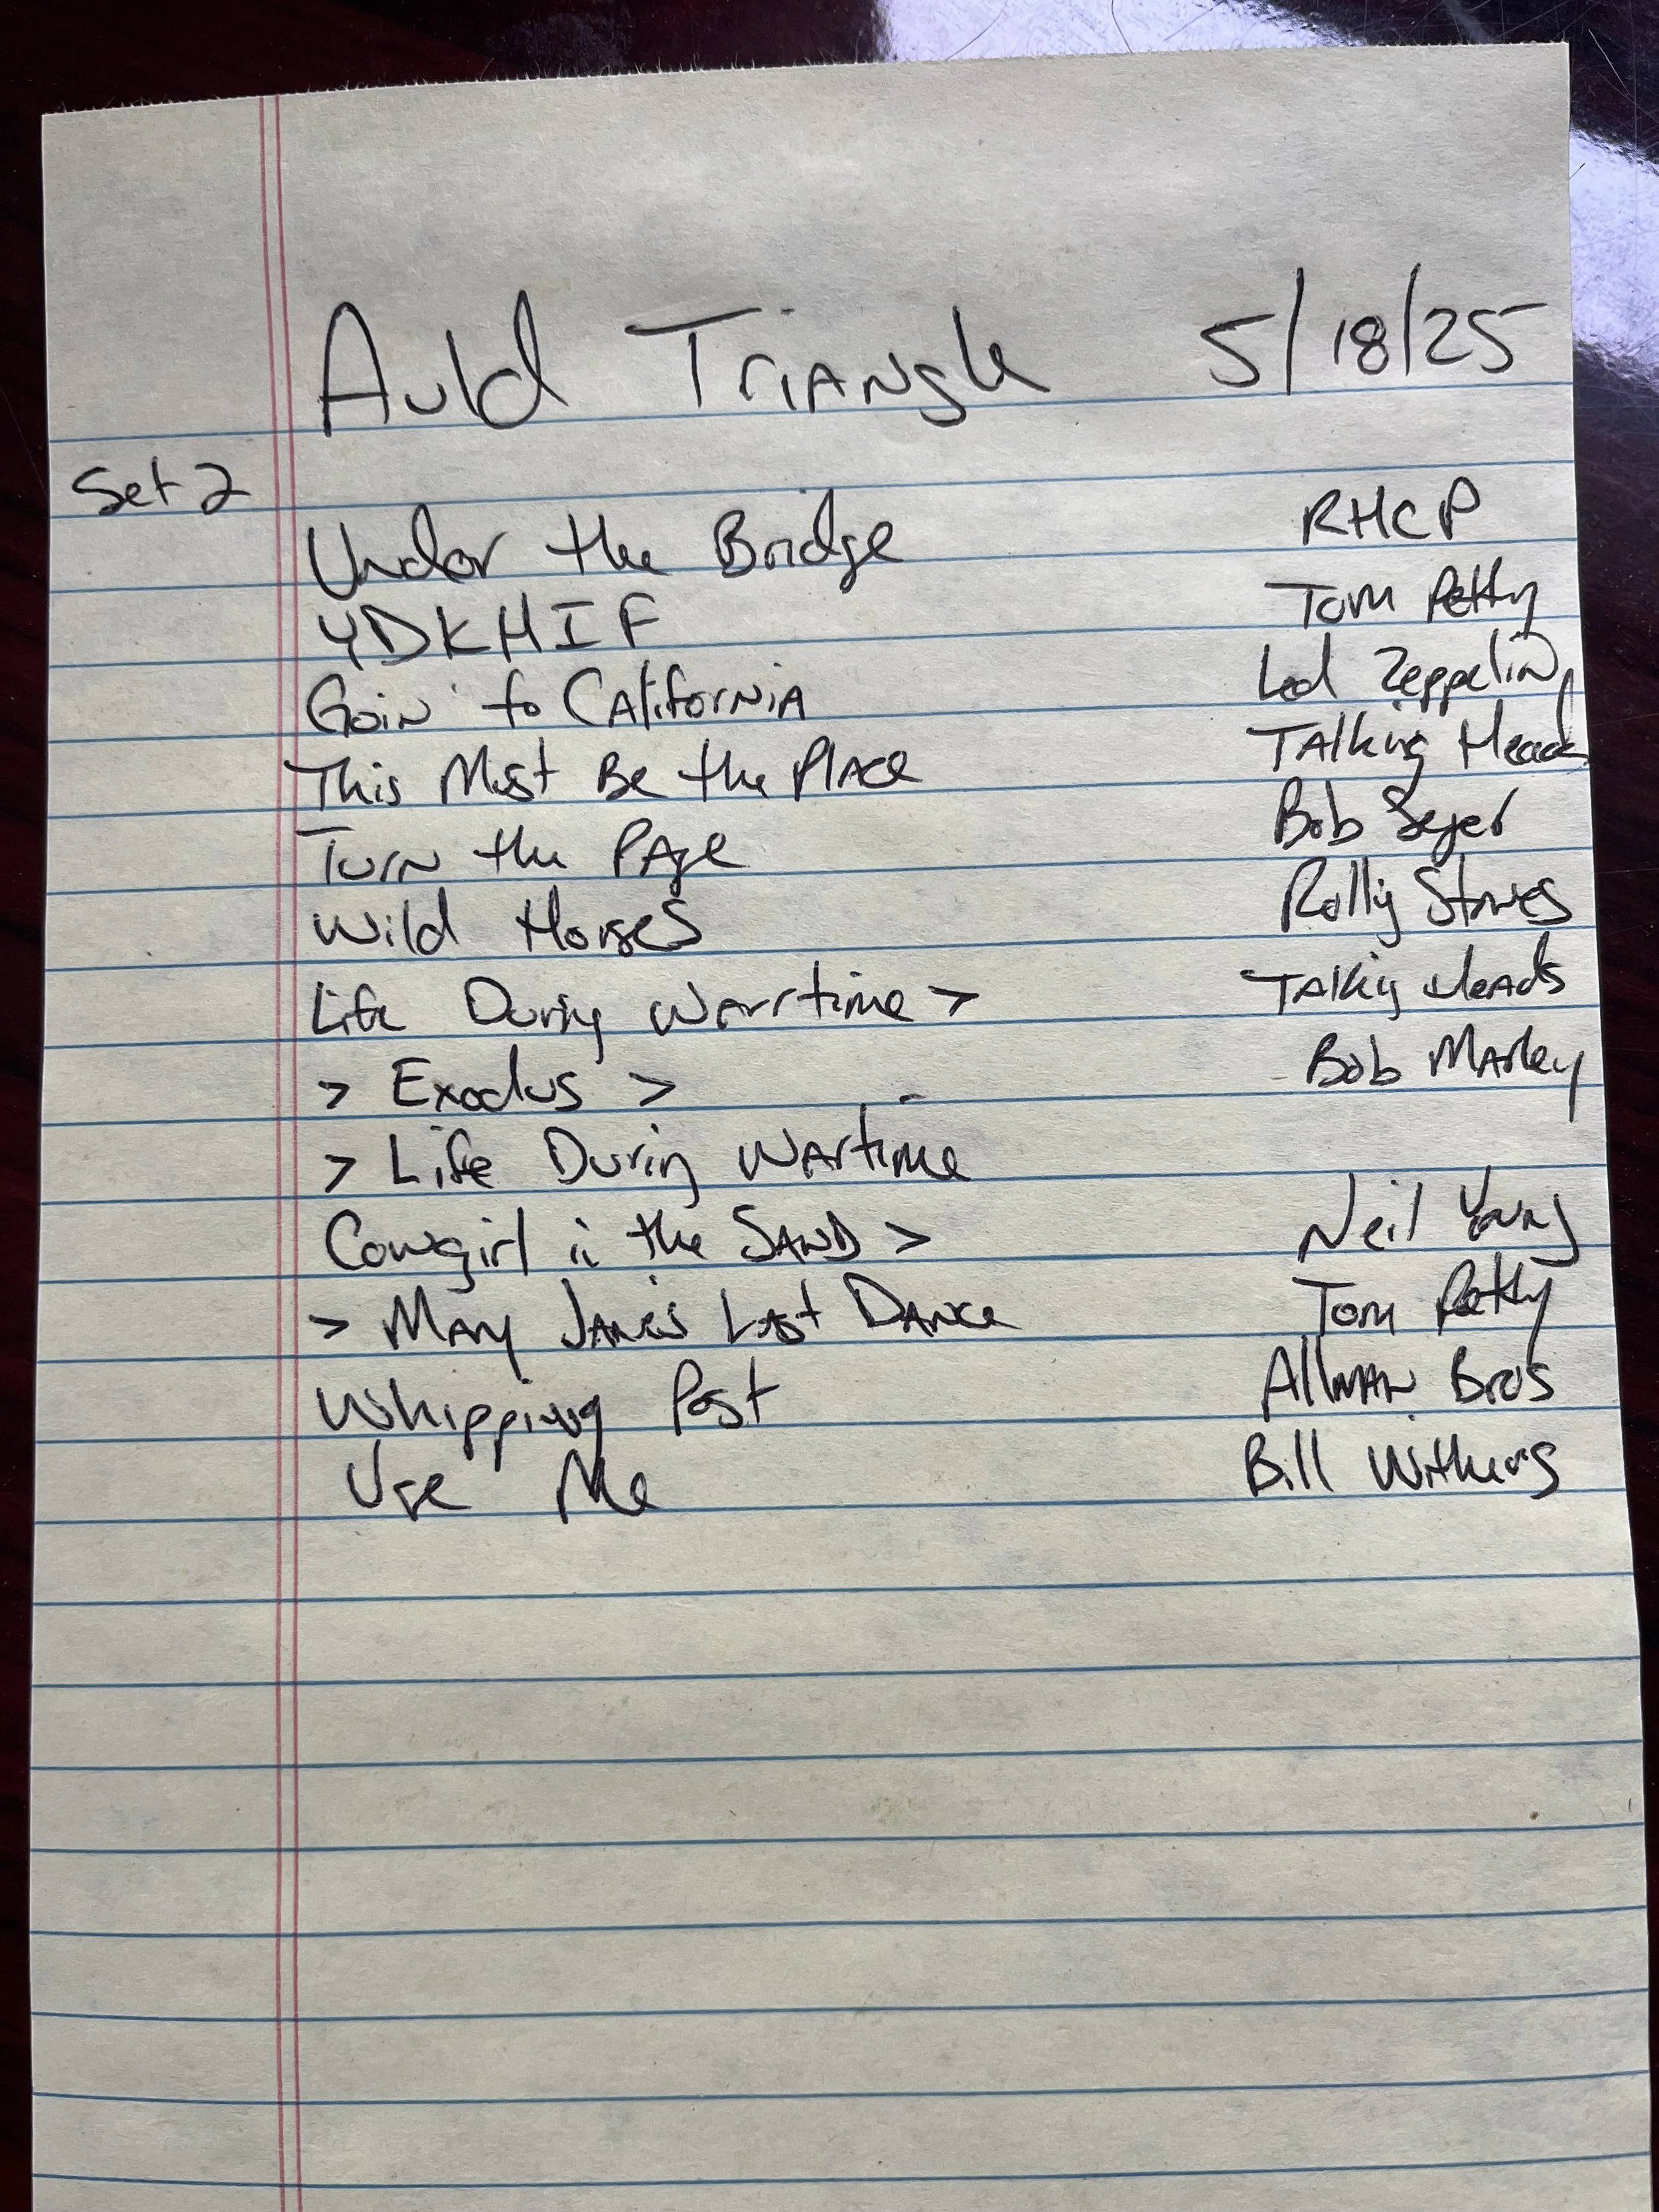 Auld Triangle 5/18/25
Set 2
Under the Bridge RHCP
YDKHIF Tom Petty
Goin' to California Led Zeppelin
This Must Be the Place Talking Heads
Turn the Page Bob Seger
Wild Horses Rolling Stones
Life During Warrtime > Talking Heads
> Exodus > Bob Marley
> Life During Wartime
Cowgirl in the Sand > Neil Young
> Mary Jane's Last Dance Tom Petty
Whipping Post Allman Bros
Use Me Bill Withers